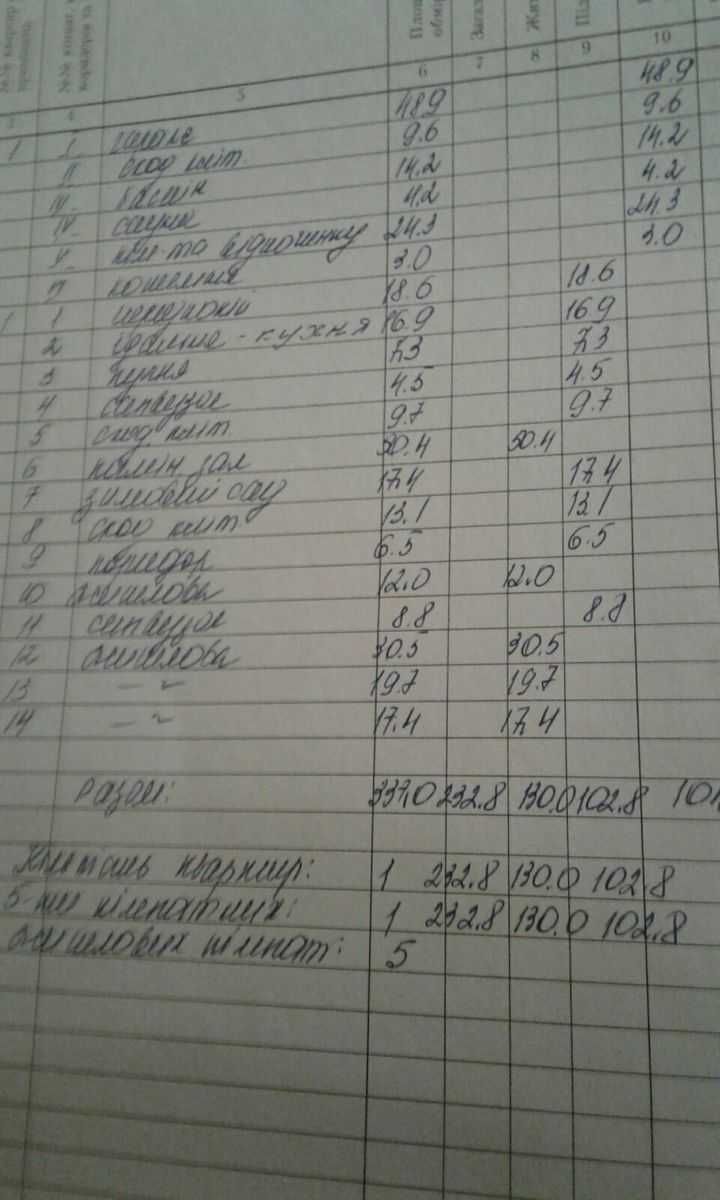 №№ квартир
приміщень
№№ кімнат,
коридорів та
Загал
Жит
Під
5 6 7 8 9 10
1 I гараж 48.9 48.9
II сход. кліт. 9.6 9.6
III басейн 14.2 14.2
IV сауна 4.2 4.2
V кім-та відпочинку 24.3 24.3
3.0 3.0
1 1 передпокій 18.6 18.6
2 - кухня 16.9 16.9
3 кухня 7.3 7.3
4 санвузол 4.5 4.5
5 сход. кліт. 9.7 9.7
6 камін. зал 50.4 50.4
7 зимовий сад 17.4 17.4
8 сход. кліт. 13.1 13.1
9 коридор 6.5 6.5
10 житлова 12.0 12.0
11 санвузол 8.8 8.8
12 житлова 30.5 30.5
13 — " — 19.7 19.7
14 — " — 17.4 17.4
Разом: 337.0 232.8 130.0 102.8 101
Кількість квартир: 1 232.8 130.0 102.8
5-ти кімнатних: 1 232.8 130.0 102.8
житлових кімнат: 5